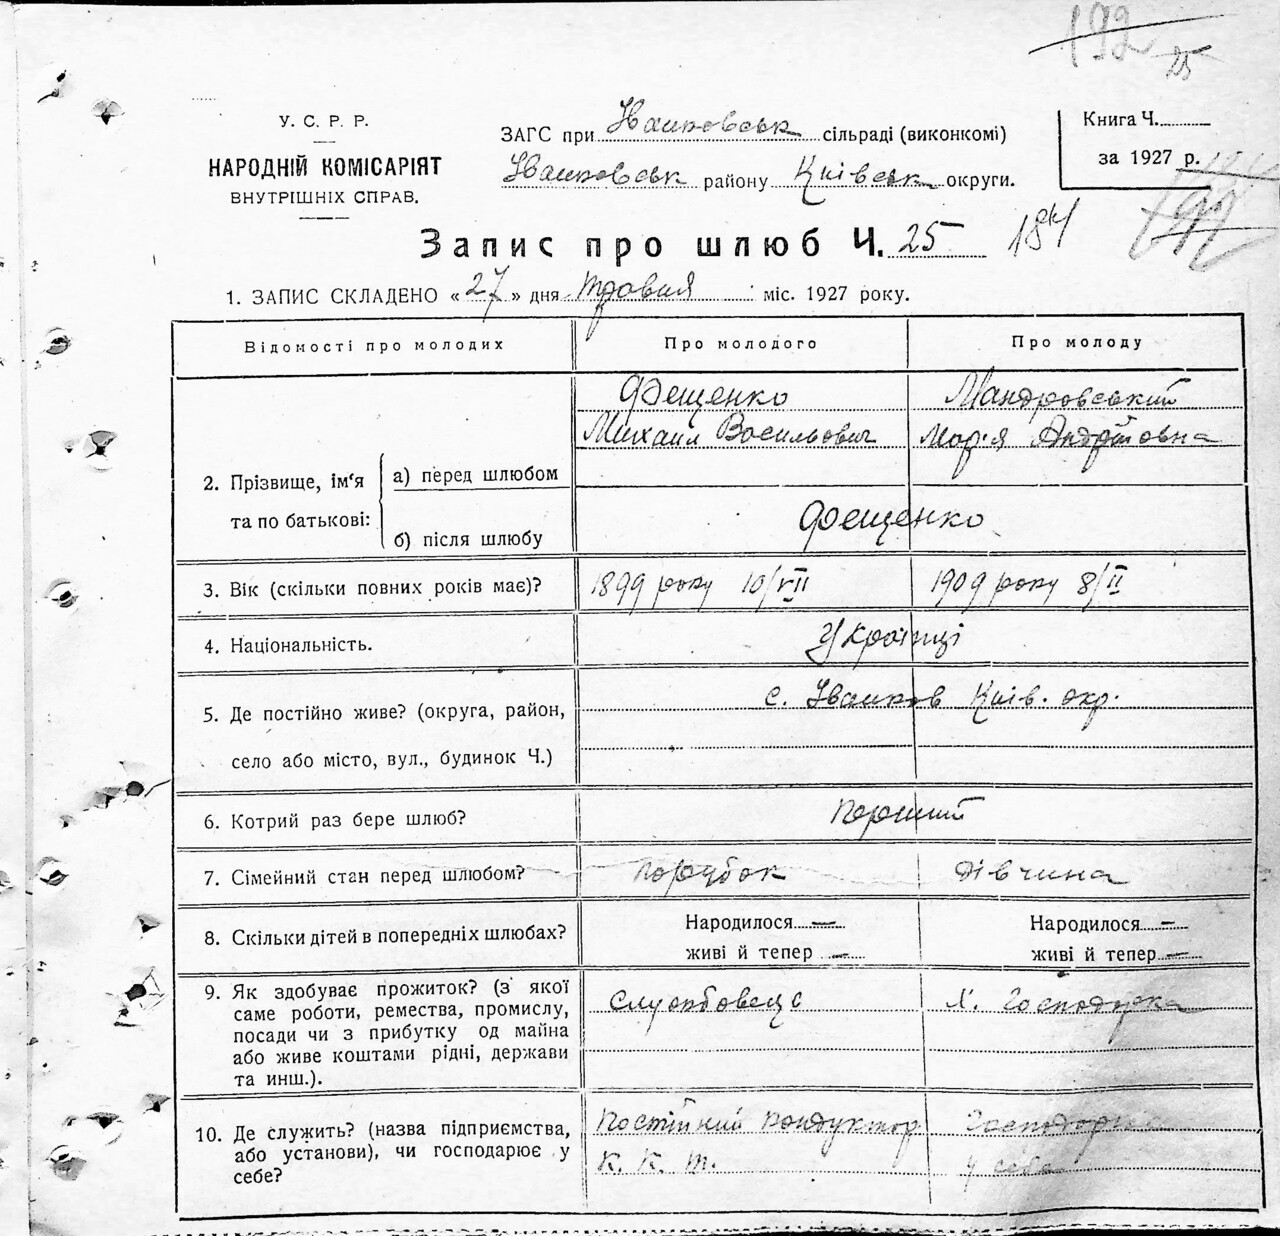 192
25
У. С. Р. Р.
НАРОДНІЙ КОМІСАРІЯТ
ВНУТРІШНІХ СПРАВ.
ЗАГС при Іванковськ сільраді (виконкомі)
Іванковськ району Київськ округи.
Книга Ч.
за 1927 р.
Запис про шлюб Ч. 25 184
1. ЗАПИС СКЛАДЕНО « 27 » дня травня міс. 1927 року.
Відомості про молодих Про молодого Про молоду
Фещенко Мандровський
Михаил Васильович Марія Андріївна
2. Прізвище, ім'я та по батькові: а) перед шлюбом
б) після шлюбу Фещенко
3. Вік (скільки повних років має)? 1899 року 10/VII 1909 року 8/II
4. Національність. Українці
5. Де постійно живе? (округа, район, с. Іванков Київ. окр.
село або місто, вул., будинок Ч.)
6. Котрий раз бере шлюб? Перший
7. Сімейний стан перед шлюбом? Парубок Дівчина
8. Скільки дітей в попередніх шлюбах? Народилося — Народилося —
живі й тепер — живі й тепер —
9. Як здобуває прожиток? (з якої
саме роботи, ремества, промислу, Служовець Х. Господарка
посади чи з прибутку од майна
або живе коштами рідні, держави
та инш.).
10. Де служить? (назва підприємства, Постійний Кондуктор Господарка
або установи), чи господарює у К. К. Т. у себе
себе?